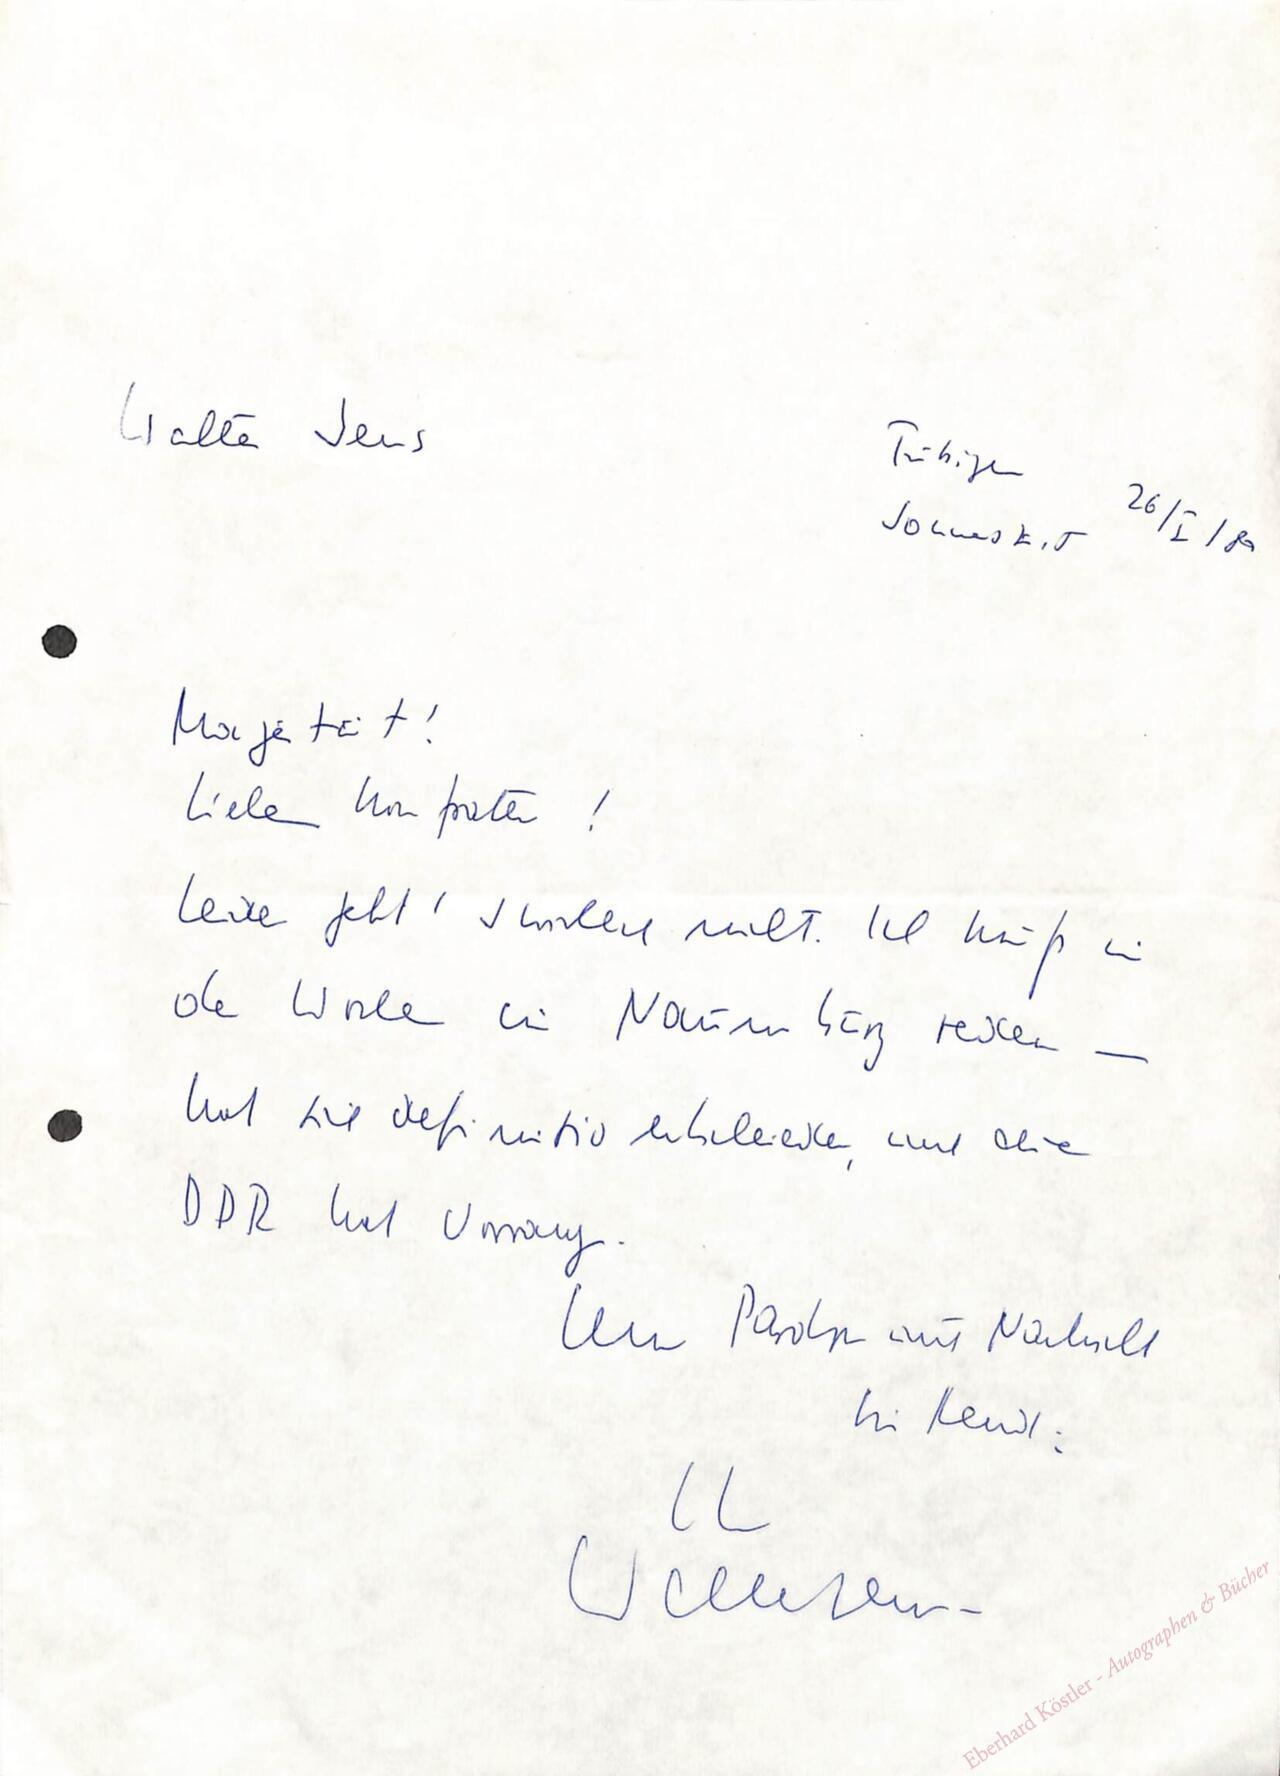 Walter Jens
Tübingen
Sonnenstr. 5 26/I/89
Majestät!
Lieber Konfrater!
Leider geht's wirklich nicht. Ich muß in
der Woche in Naumburg reden —
hat sich definitiv entschieden, und die
DDR hat Vorrang.
Um Pardon und Nachsicht
bittend:
Ihr
Walter Jens
Eberhard Köstler - Autographen & Bücher